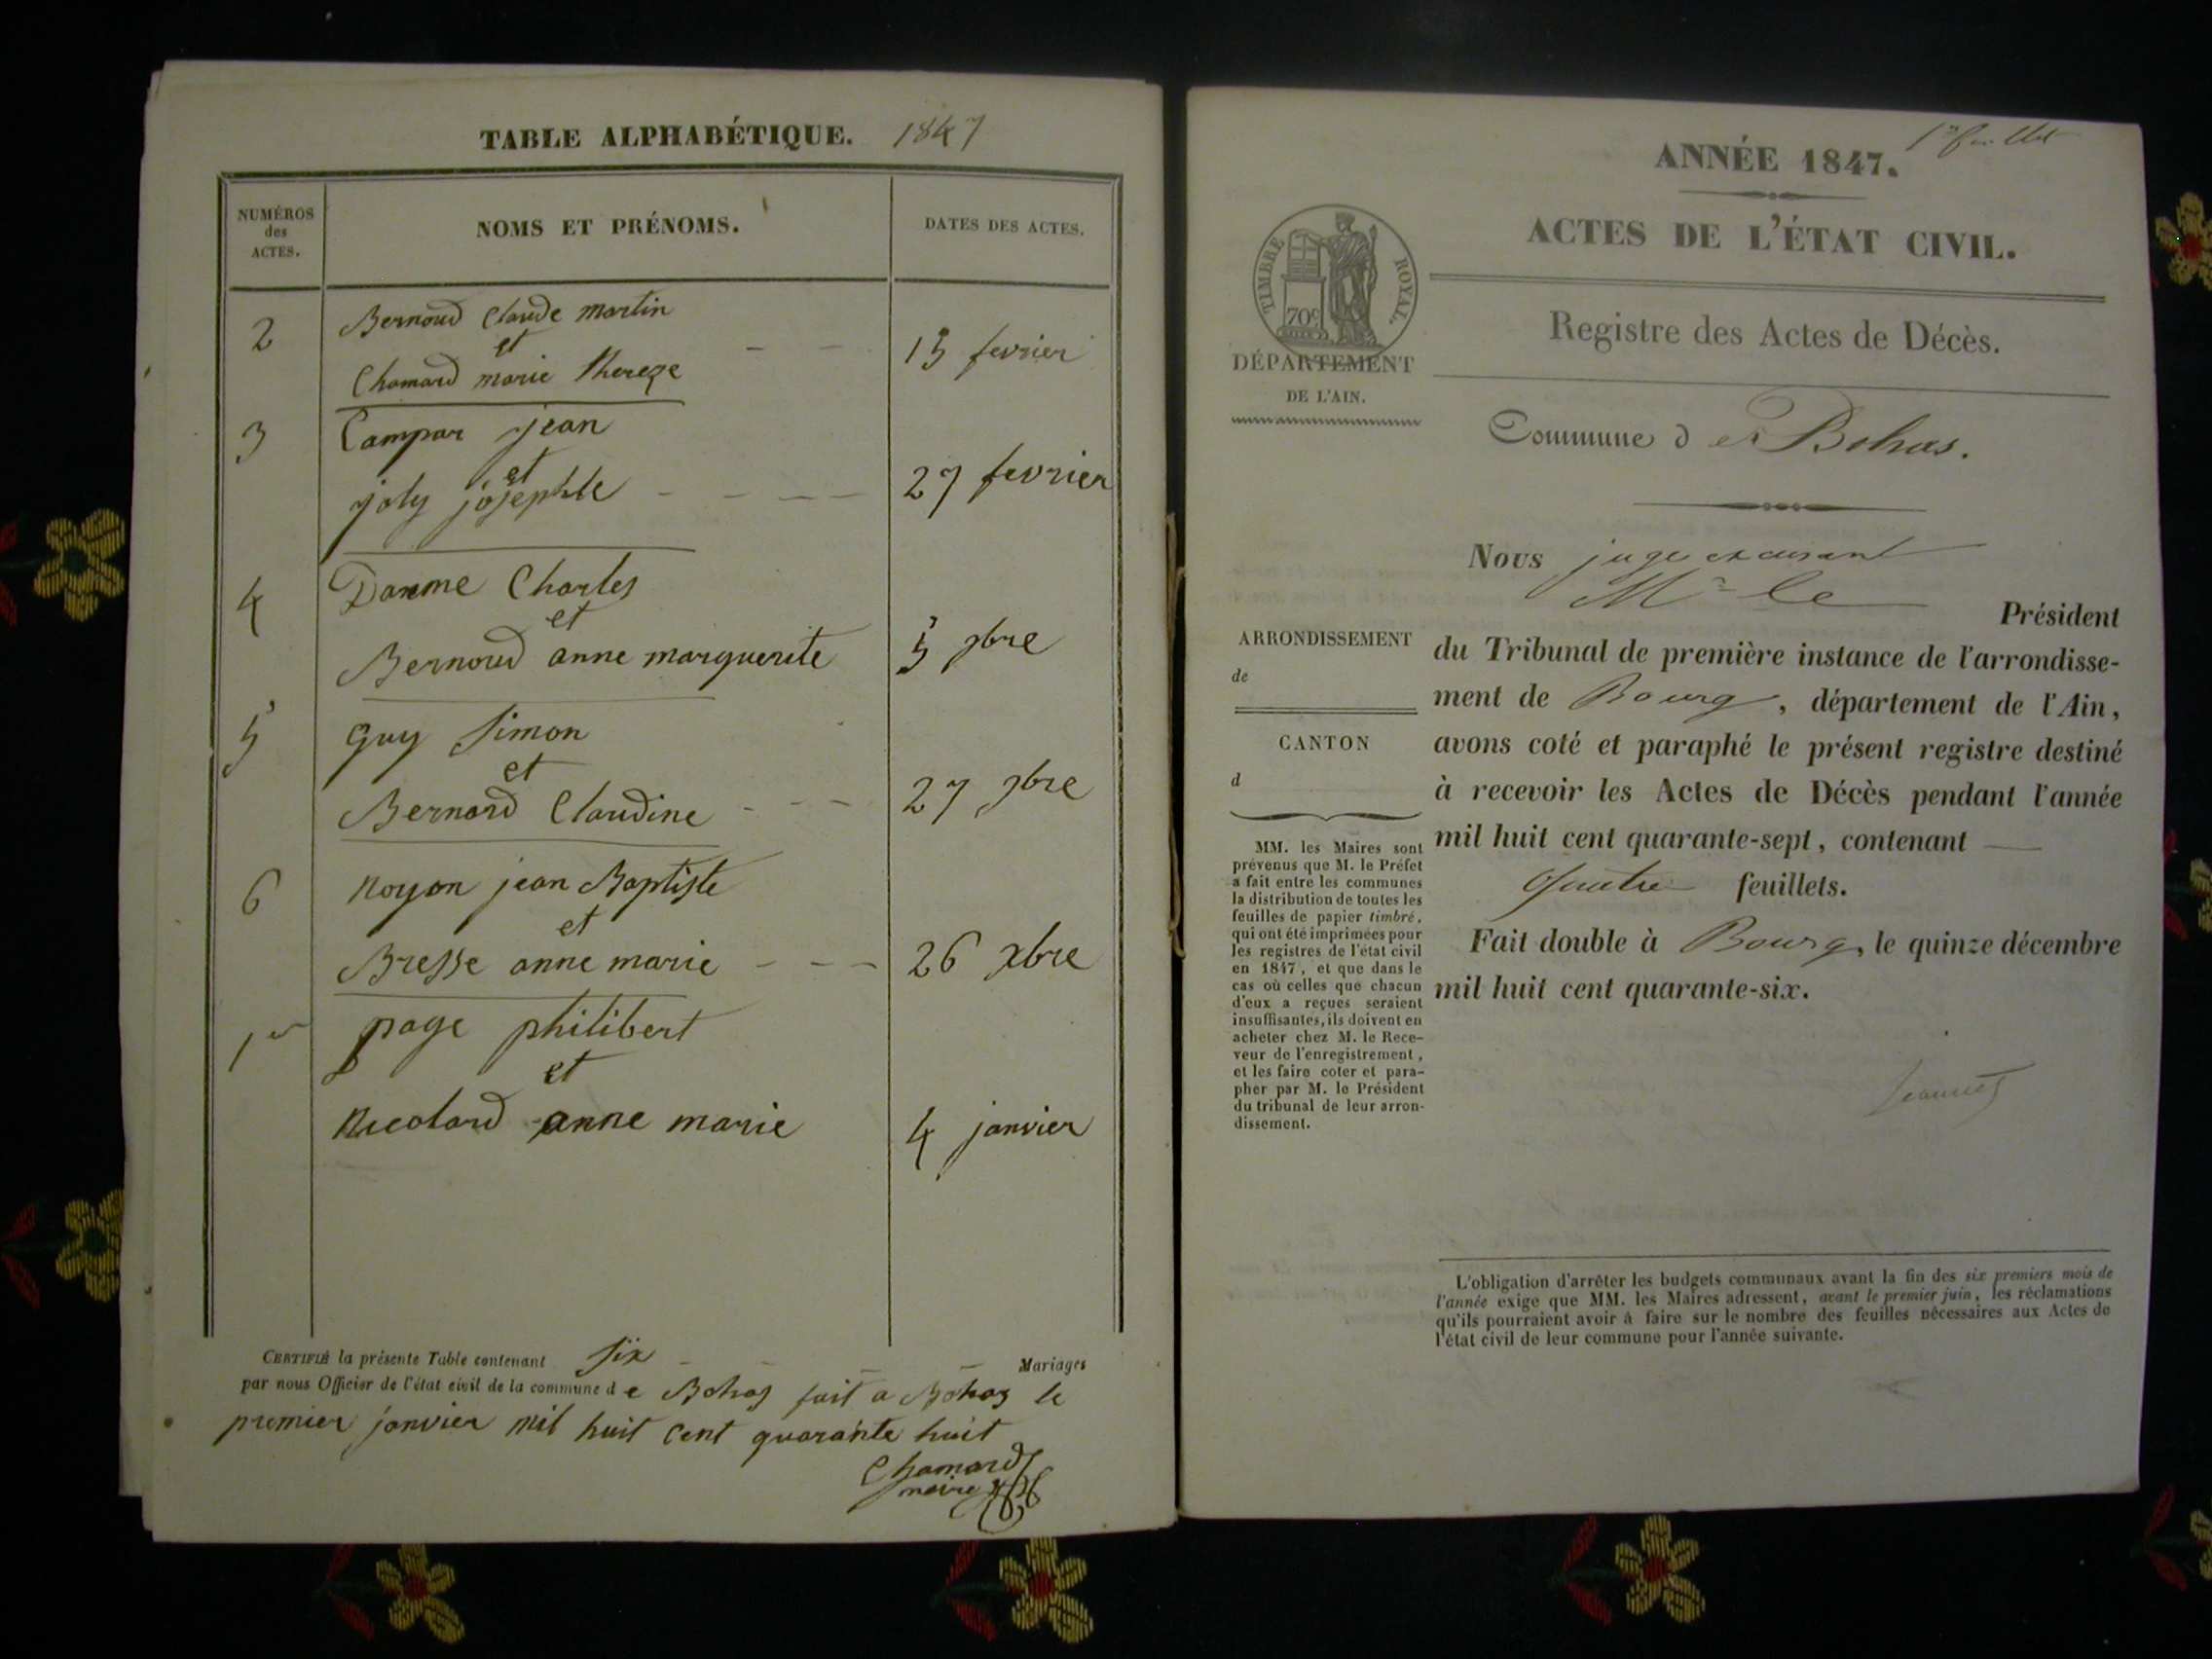 TABLE ALPHABÉTIQUE. 1847
NUMÉROS
des
ACTES.
NOMS ET PRÉNOMS.
DATES DES ACTES.
2
Bernoud Claude martin
et
Chamard marie thereze
15 fevrier
3
Campar jean
et
joly josephte
27 fevrier
4
Darme Charles
et
Bernoud anne marguerite
5 9bre
5
Guy Simon
et
Bernard Claudine
27 9bre
6
noyon jean Baptiste
et
Bresse anne marie
26 xbre
1er
page philibert
et
nicolard anne marie
4 janvier
CERTIFIÉ la présente Table contenant six Mariages
par nous Officier de l'état civil de la commune de Bohas fait a Bohas le
premier janvier mil huit cent quarante huit
Chamard
maire
1er feuillet
ANNÉE 1847.
ACTES DE L'ÉTAT CIVIL.
TIMBRE ROYAL.
70c
DÉPARTEMENT
DE L'AIN.
Registre des Actes de Décès.
Commune de Bohas.
ARRONDISSEMENT
de
CANTON
d
MM. les Maires sont
prévenus que M. le Préfet
a fait entre les communes
la distribution de toutes les
feuilles de papier timbré,
qui ont été imprimées pour
les registres de l'état civil
en 1847, et que dans le
cas où celles que chacun
d'eux a reçues seraient
insuffisantes, ils doivent en
acheter chez M. le Rece-
veur de l'enregistrement,
et les faire coter et para-
pher par M. le Président
du tribunal de leur arron-
dissement.
Nous juge excusant
Mr le
Président
du Tribunal de première instance de l'arrondisse-
ment de Bourg, département de l'Ain,
avons coté et paraphé le présent registre destiné
à recevoir les Actes de Décès pendant l'année
mil huit cent quarante-sept, contenant
quatre feuillets.
Fait double à Bourg, le quinze décembre
mil huit cent quarante-six.
L'obligation d'arrêter les budgets communaux avant la fin des six premiers mois de
l'année exige que MM. les Maires adressent, avant le premier juin, les réclamations
qu'ils pourraient avoir à faire sur le nombre des feuilles nécessaires aux Actes de
l'état civil de leur commune pour l'année suivante.